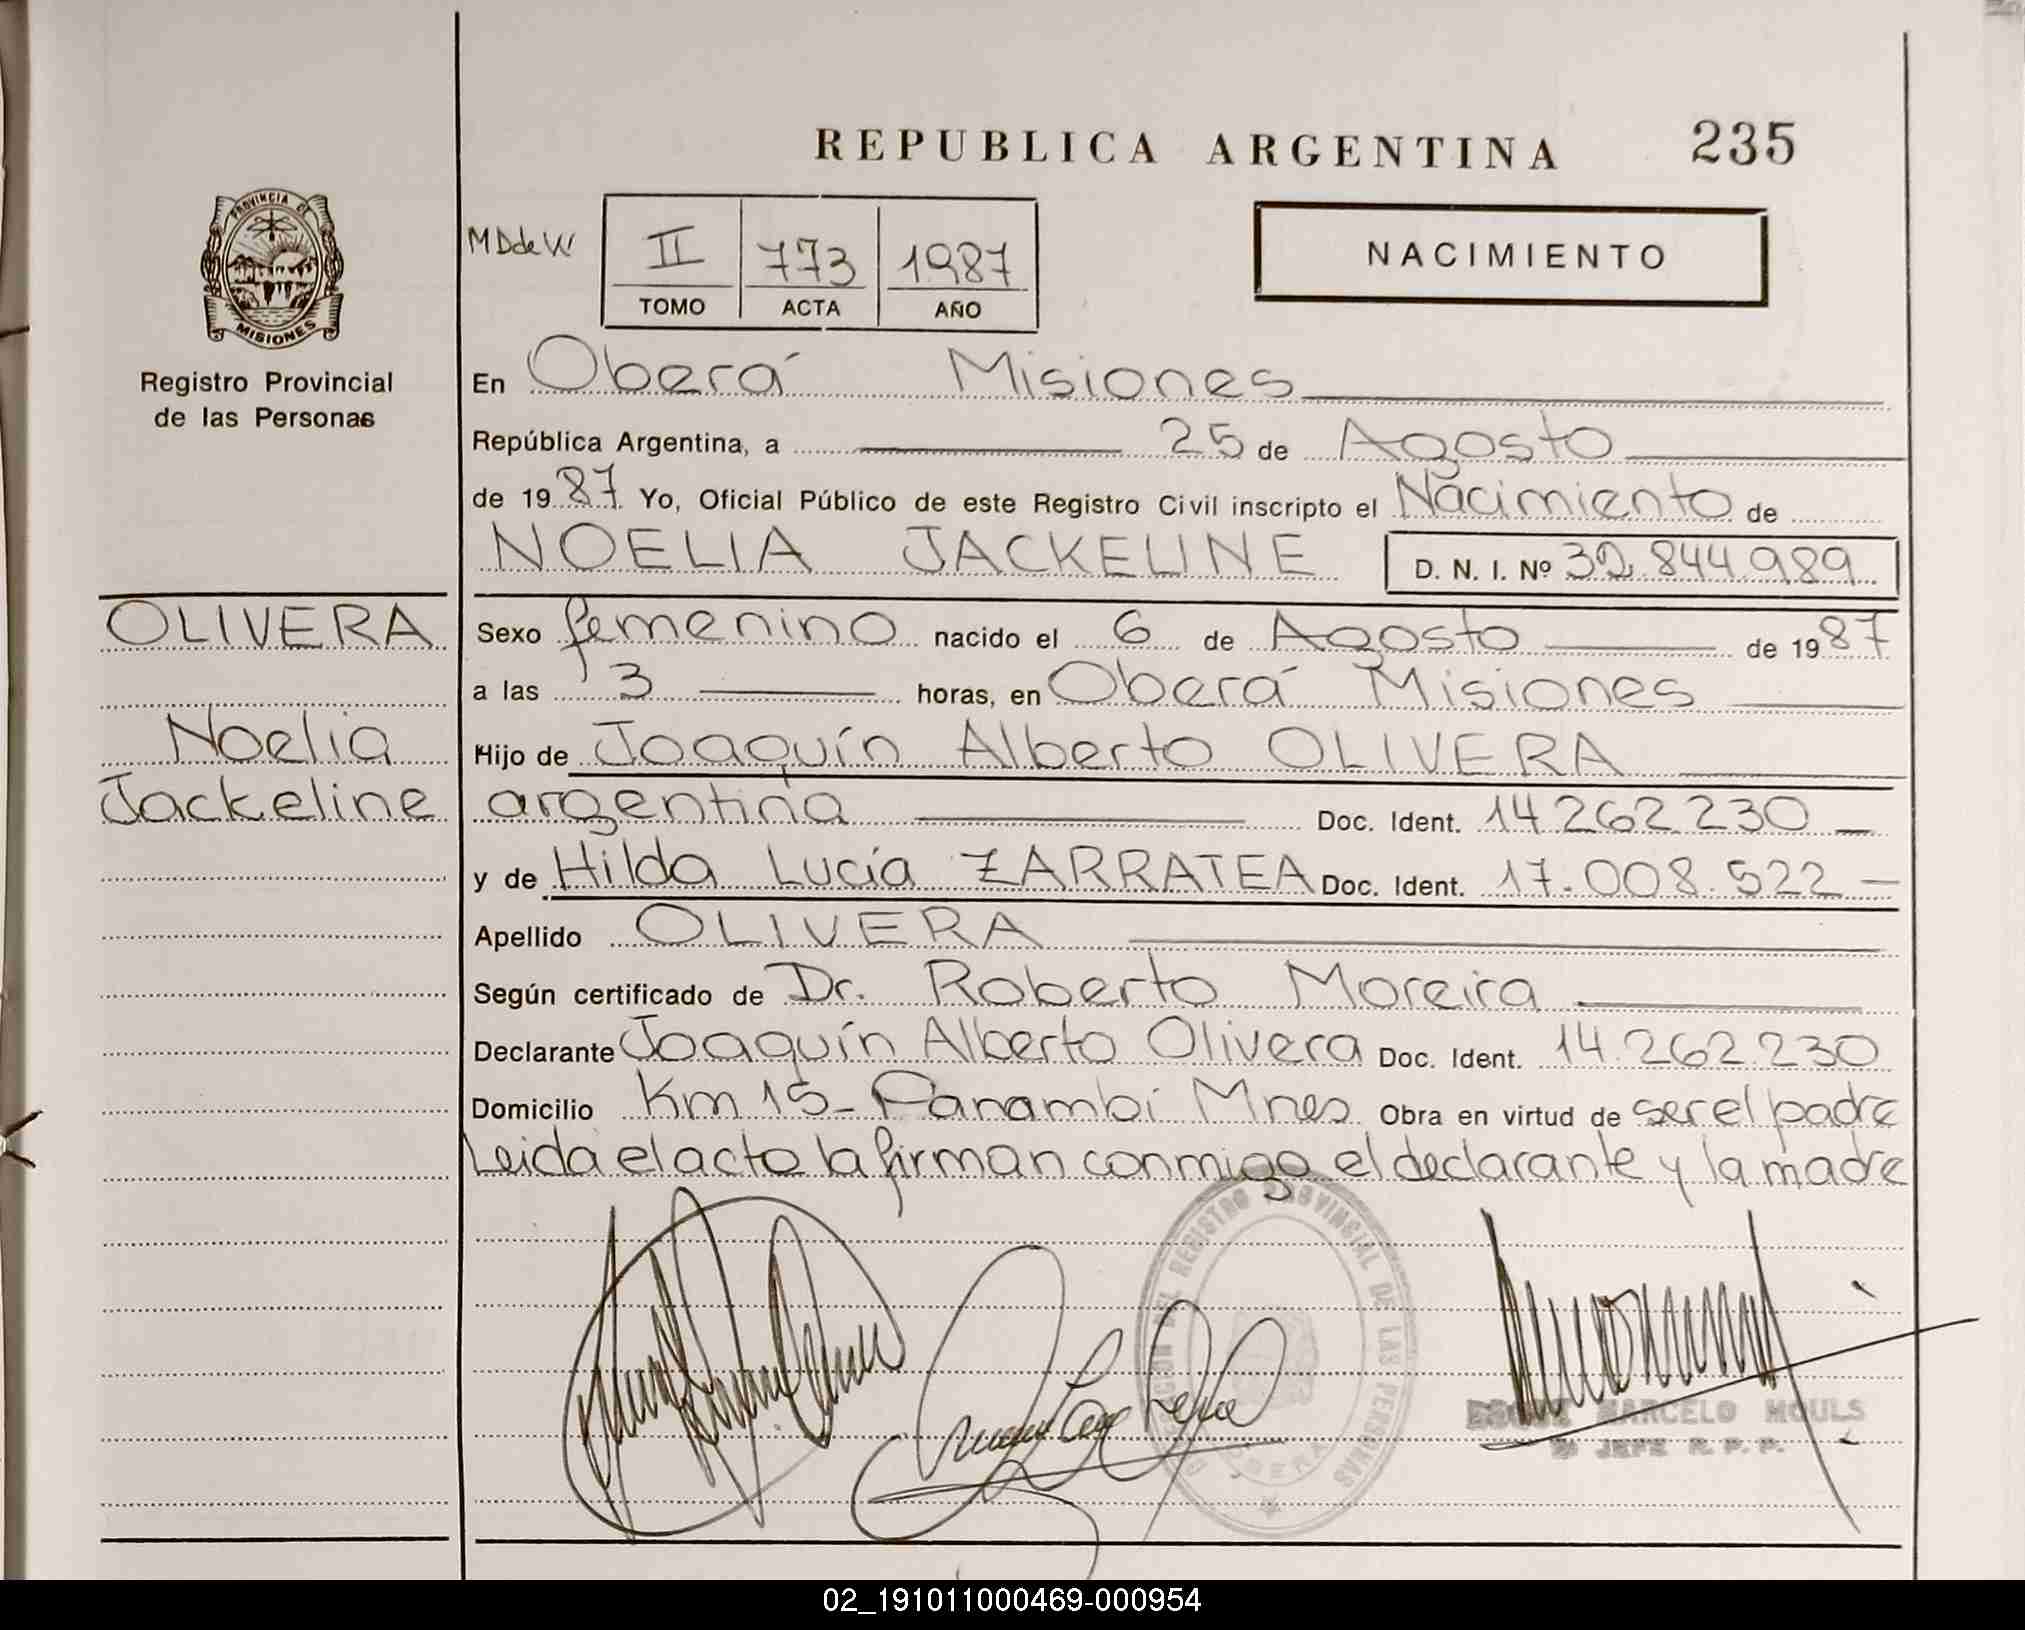 REPUBLICA ARGENTINA 235
PROVINCIA DE
MISIONES
Registro Provincial
de las Personas
MDdeW
II 773 1987
TOMO ACTA AÑO
NACIMIENTO
En Oberá Misiones
República Argentina, a 25 de Agosto
de 1987 Yo, Oficial Público de este Registro Civil inscripto el Nacimiento de
NOELIA JACKELINE D. N. I. Nº 32.844.989
OLIVERA
Noelia
Jackeline
Sexo femenino nacido el 6 de Agosto de 1987
a las 3 horas, en Oberá Misiones
Hijo de Joaquín Alberto OLIVERA
argentina Doc. Ident. 14.262.230
y de Hilda Lucía ZARRATEA Doc. Ident. 17.008.522
Apellido OLIVERA
Según certificado de Dr. Roberto Moreira
Declarante Joaquín Alberto Olivera Doc. Ident. 14.262.230
Domicilio Km 15 - Panambí Mnes Obra en virtud de ser el padre
Leida el acto la firman conmigo el declarante y la madre
DEL REGISTRO PROVINCIAL DE LAS PERSONAS
OBERA
MARCELO MOULS
JEFE R. P. P.
02_191011000469-000954